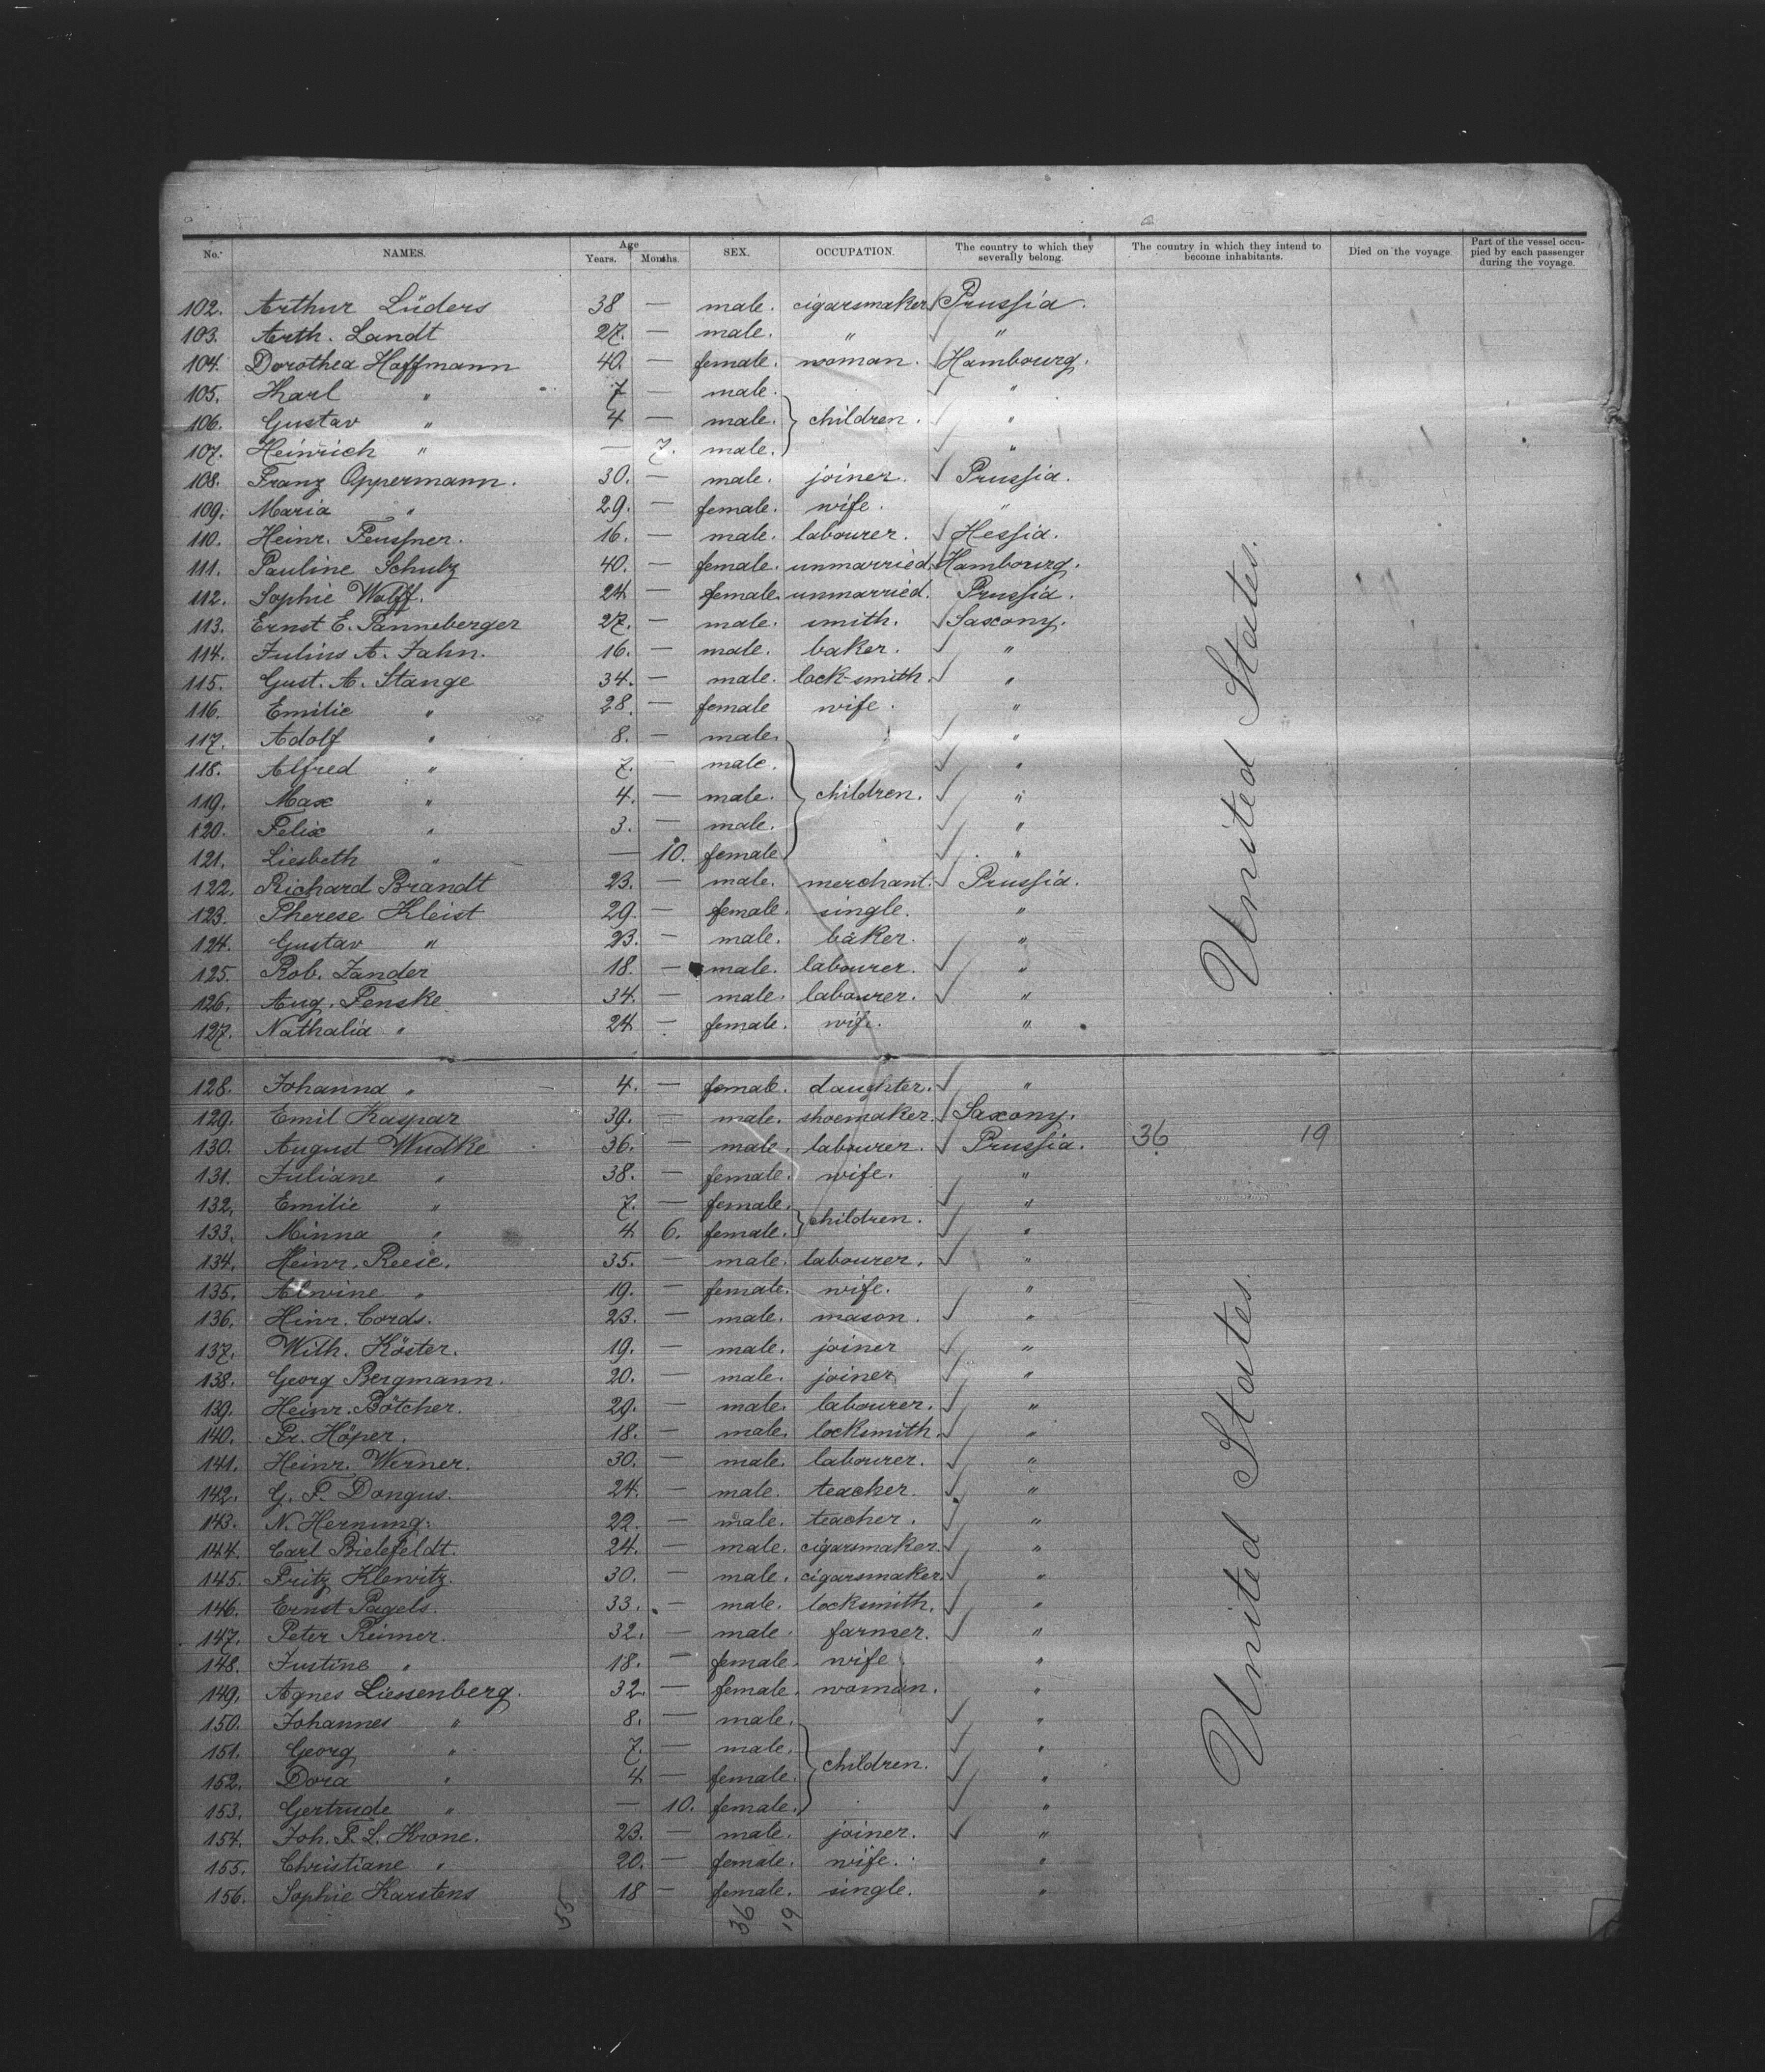 No. NAMES. Age Years. Months. SEX. OCCUPATION. The country to which they severally belong. The country in which they intend to become inhabitants. Died on the voyage. Part of the vessel occupied by each passenger during the voyage.
102. Arthur Lüders 38 — male. cigarsmaker Prussia.
103. Arth. Landt 27. — male. " "
104. Dorothea Hoffmann 40. — female. woman. Hambourg.
105. Karl " 7 — male. "
106. Gustav " 4 — male. children. "
107. Heinrich " — 7. male. "
108. Franz Oppermann. 30. — male. joiner. Prussia.
109. Maria " 29. — female. wife. "
110. Heinr. Feussner. 16. — male. labourer. Hessia.
111. Pauline Schulz 40. — female. unmarried. Hambourg.
112. Sophie Wolff. 24 — female. unmarried. Prussia.
113. Ernst E. Panneberger 27. — male. smith. Saxony.
114. Julius A. Jahn. 16. — male. baker. "
115. Gust. A. Stange 34. — male. lock-smith. "
116. Emilie " 28. — female wife. "
117. Adolf " 8. — male. "
118. Alfred " 7. — male. "
119. Max " 4. — male. children. "
120. Felix " 3. — male. "
121. Liesbeth " — 10. female "
122. Richard Brandt 23. — male. merchant. Prussia.
123. Therese Kleist 29. — female. single. "
124. Gustav " 23. — male. baker. "
125. Rob. Zander 18. — male. labourer. "
126. Aug. Fenske 34. — male. labourer. "
127. Nathalia " 24 — female. wife. "
128. Johanna " 4. — female. daughter. "
129. Emil Kaspar 39. — male. shoemaker. Saxony.
130. August Wudke 36. — male. labourer. Prussia. 36 19
131. Juliane " 38. — female. wife. "
132. Emilie " 7. — female. "
133. Minna " 4 6. female. children. "
134. Heinr. Reese. 35. — male. labourer. "
135. Alwine " 19. — female. wife. "
136. Hinr. Cords. 23. — male. mason. "
137. Wilh. Köster. 19. — male. joiner "
138. Georg Bergmann. 20. — male. joiner "
139. Heinr. Bötcher. 29. — male. labourer. "
140. Fr. Höper. 18. — male. locksmith. "
141. Heinr. Werner. 30. — male. labourer. "
142. G. F. Dongus. 24. — male. teacher. "
143. N. Hernung. 22. — male. teacher. "
144. Carl Bielefeldt. 24. — male. cigarsmaker. "
145. Fritz Klewitz. 30. — male. cigarsmaker. "
146. Ernst Pagels. 33. — male. locksmith. "
147. Peter Reimer. 32. — male. farmer. "
148. Justine " 18. — female. wife "
149. Agnes Liessenberg. 32. — female. woman. "
150. Johannes " 8. — male. "
151. Georg " 7. — male. "
152. Dora " 4 — female. children. "
153. Gertrude " — 10. female. "
154. Joh. F. L. Krone. 23. — male. joiner. "
155. Christiane " 20. — female. wife. "
156. Sophie Karstens 18 — female. single. "
55 36 19
United States.
United States.